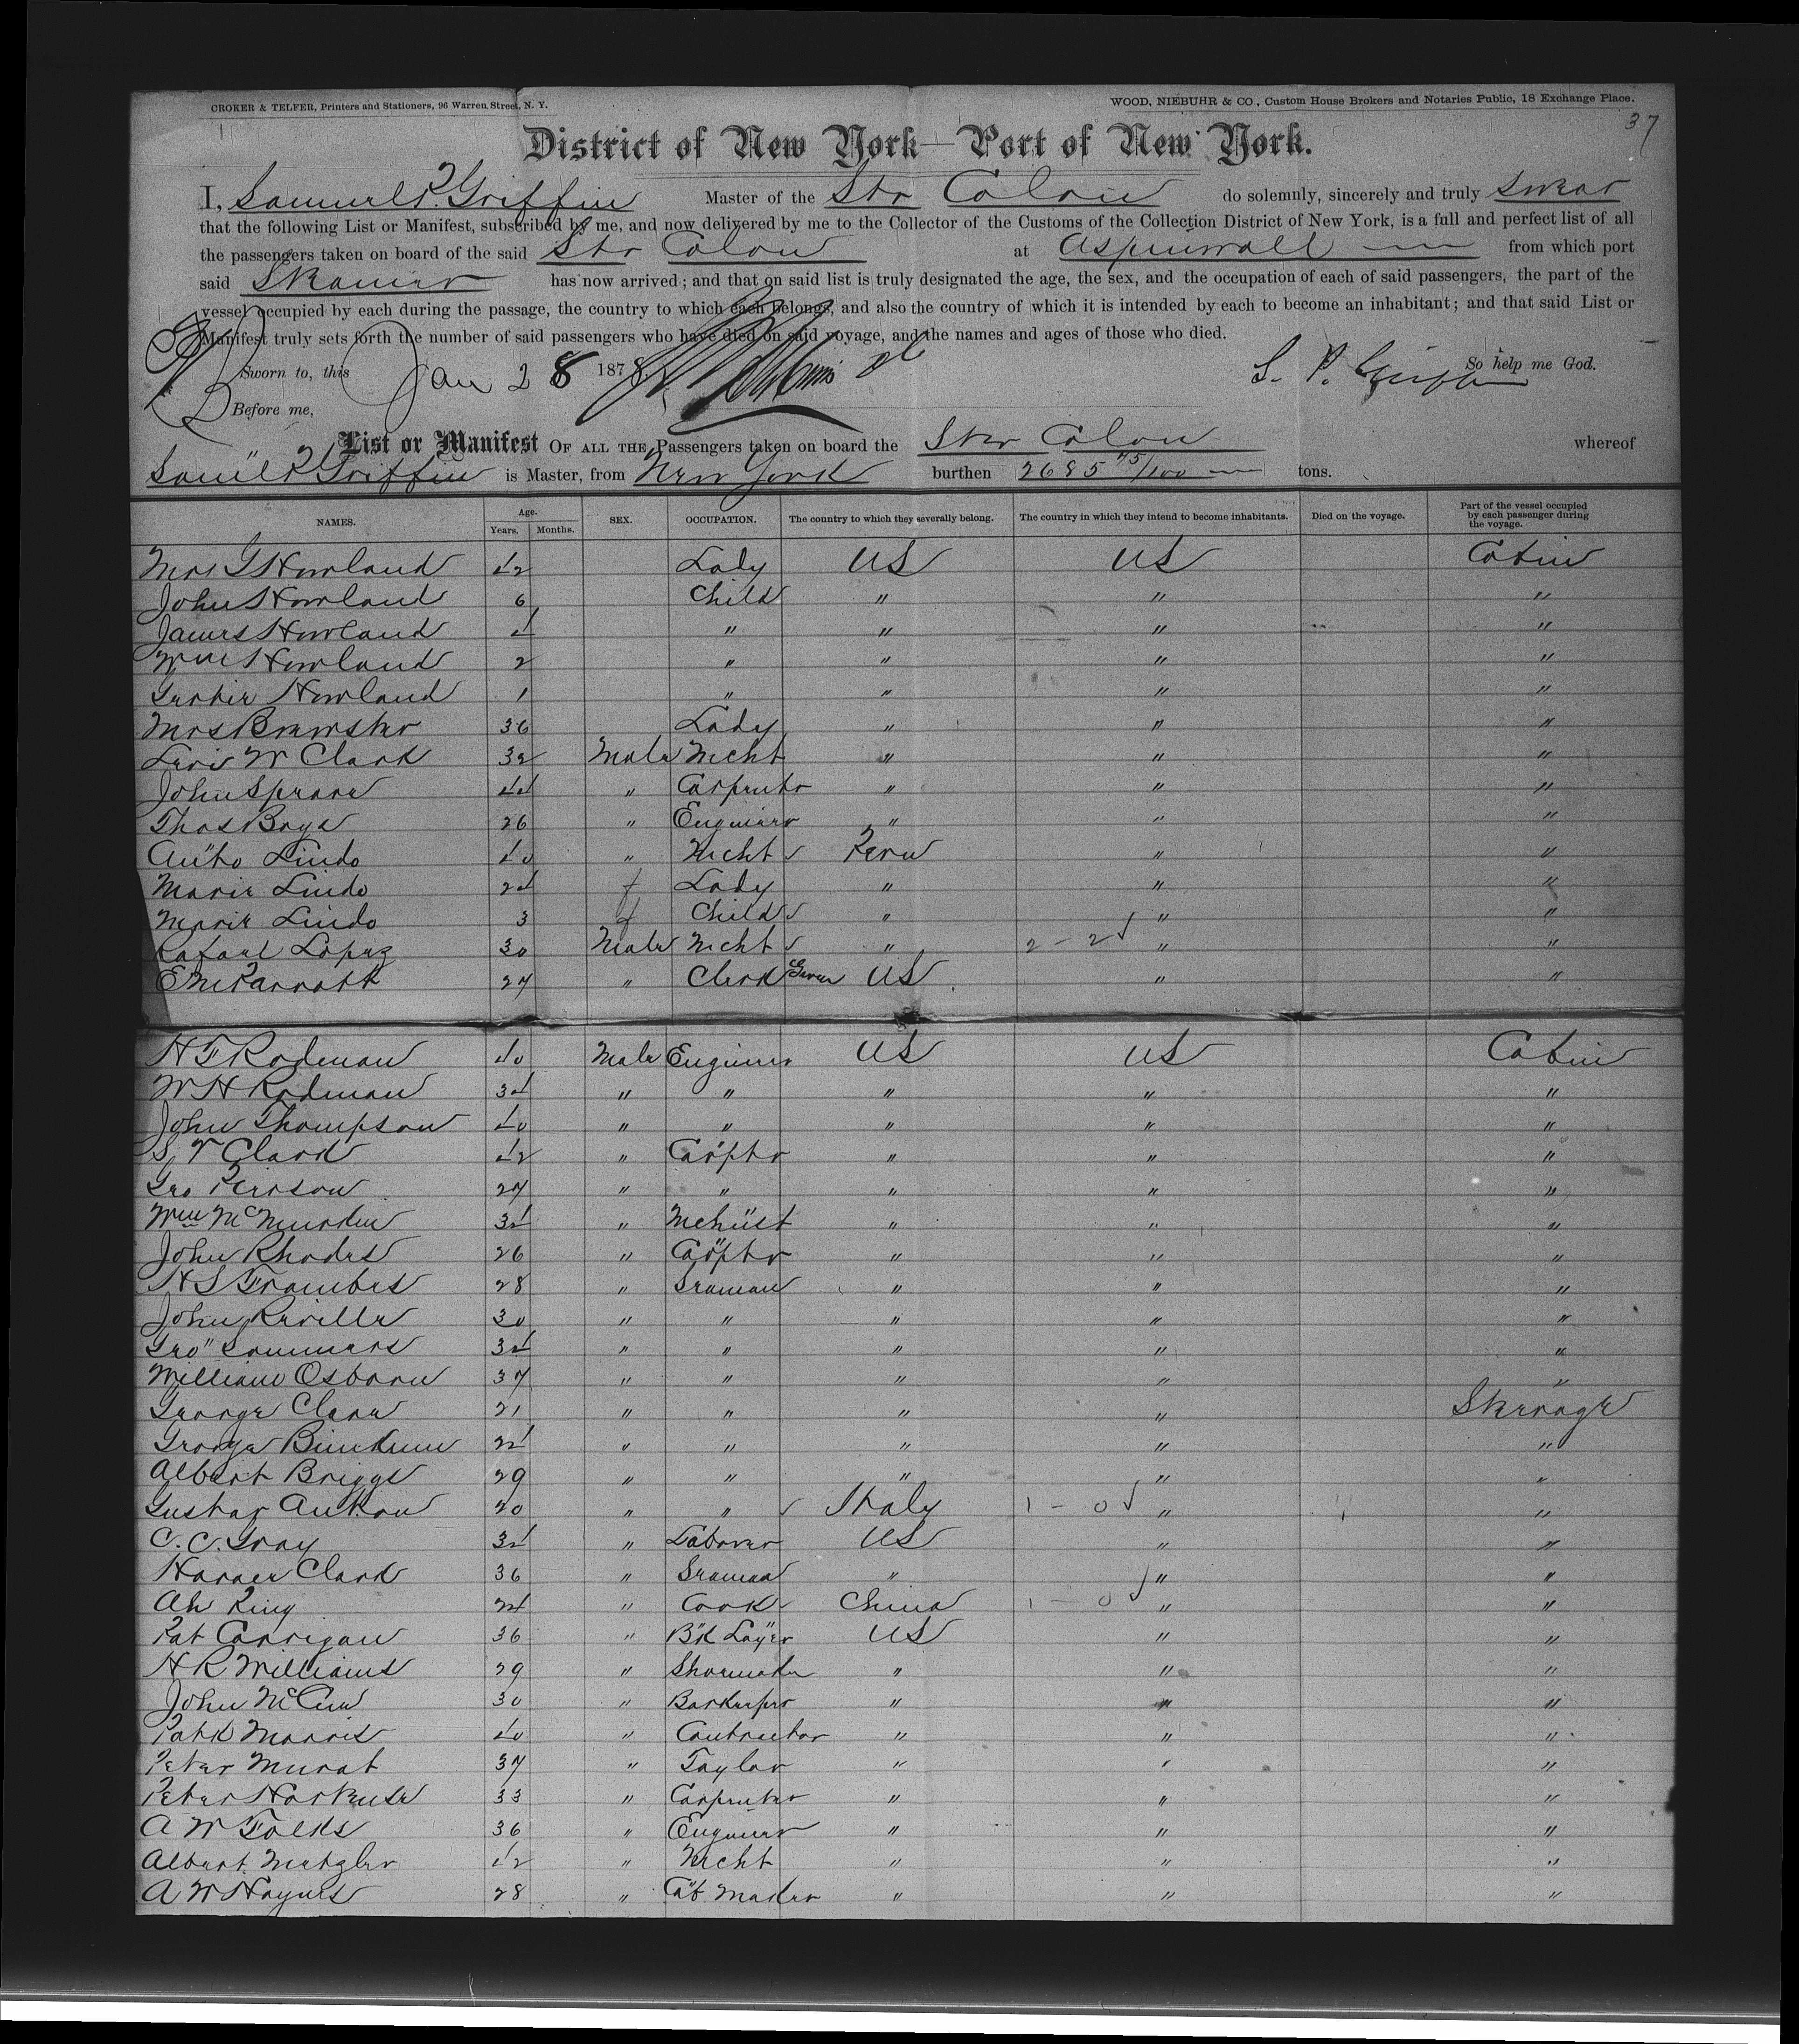 CROKER & TELFER, Printers and Stationers, 96 Warren Street, N. Y. WOOD, NIEBUHR & CO., Custom House Brokers and Notaries Public, 18 Exchange Place.
37
District of New York — Port of New York.
I, Samuel P. Griffin Master of the Str Colon do solemnly, sincerely and truly swear
that the following List or Manifest, subscribed by me, and now delivered by me to the Collector of the Customs of the Collection District of New York, is a full and perfect list of all
the passengers taken on board of the said Str Colon at Aspinwall from which port
said Steamer has now arrived; and that on said list is truly designated the age, the sex, and the occupation of each of said passengers, the part of the
vessel occupied by each during the passage, the country to which each belongs, and also the country of which it is intended by each to become an inhabitant; and that said List or
Manifest truly sets forth the number of said passengers who have died on said voyage, and the names and ages of those who died.
Sworn to, this Jan 28 1878 S. P. Griffin So help me God.
Before me,
List or Manifest OF ALL THE Passengers taken on board the Str Colon whereof
Saml P Griffin is Master, from New York burthen 2685 45/100 tons.
NAMES. Age. Years. Months. SEX. OCCUPATION. The country to which they severally belong. The country in which they intend to become inhabitants. Died on the voyage. Part of the vessel occupied by each passenger during the voyage.
Mrs G Howland 42 Lady US US Cabin
John Howland 6 Child " " "
James Howland 4 " " " "
Wm Howland 2 " " " "
Howland 1 " " " "
Mrs Brewster 36 Lady " " "
Levi W Clark 32 Male Mcht " " "
John Sprane 44 " Carpenter " " "
Thos Boyd 26 " Engineer " " "
Anto Lindo 40 " Mcht Peru " "
Marie Lindo 24 f Lady " " "
Marie Lindo 3 f Child " " "
Rafael Lopez 30 Male Mcht " 2 - 2 " "
E M Parrott 27 " Clerk US " "
H F Rodman 40 Male Engineer US US Cabin
W H Rodman 34 " " " " "
John Thompson 40 " " " " "
S T Clark 42 " Carptr " " "
Geo Peirson 27 " " " " "
Wm McMurken 34 " Mchist " " "
John Rhodes 26 " Carptr " " "
H S Frambes 28 " Seaman " " "
John Reville 30 " " " " "
Geo Sommers 34 " " " " "
William Osborn 37 " " " " "
George Clare 21 " " " " Steerage
George 24 " " " " "
Albert Briggs 29 " " " " "
Gustav 20 " " Italy 1 - 0 " "
C. C. Gray 34 " Laborer US " "
Clark 36 " Seaman " " "
Ah King 24 " Cook China 1 - 0 " "
Pat Corrigan 36 " Bk Layer US " "
H R Williams 29 " Shoemaker " " "
John 30 " Barkeeper " " "
Patk Morris 40 " Contractor " " "
Peter Murat 37 " Taylor " " "
Peter 33 " Carpenter " " "
A W Folks 36 " Engineer " " "
Albert Metzler 42 " Mcht " " "
A W Haynes 28 " Cab Maker " " "